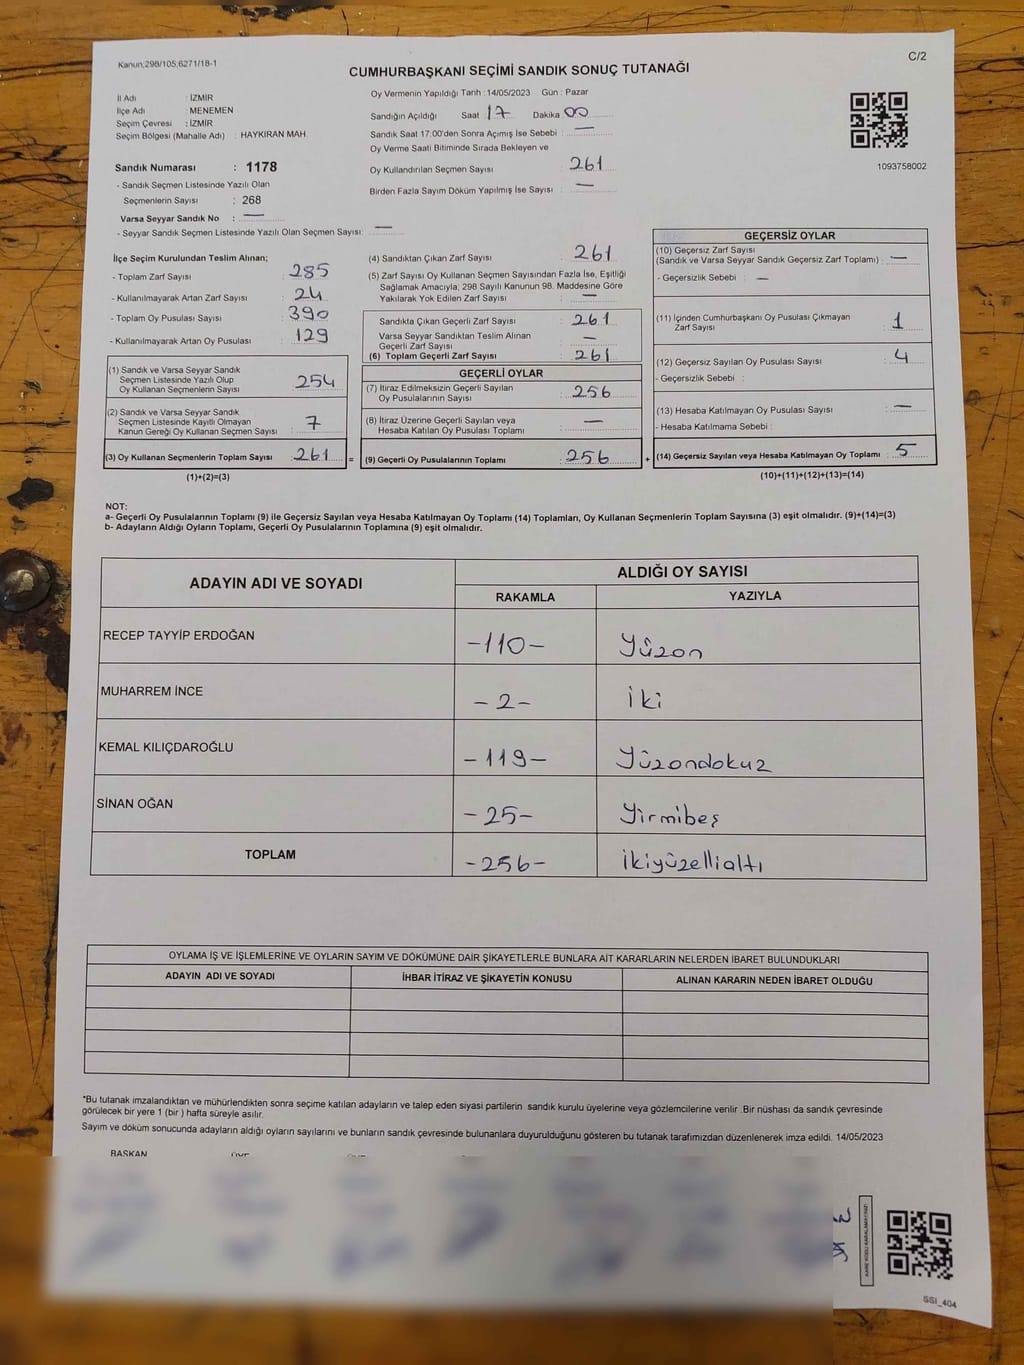 Kanun;298/105,6271/18-1
C/2
CUMHURBAŞKANI SEÇİMİ SANDIK SONUÇ TUTANAĞI
İl Adı : İZMİR
İlçe Adı : MENEMEN
Seçim Çevresi : İZMİR
Seçim Bölgesi (Mahalle Adı) : HAYKIRAN MAH.
Sandık Numarası : 1178
- Sandık Seçmen Listesinde Yazılı Olan
Seçmenlerin Sayısı : 268
Varsa Seyyar Sandık No : —
- Seyyar Sandık Seçmen Listesinde Yazılı Olan Seçmen Sayısı: —
Oy Vermenin Yapıldığı Tarih : 14/05/2023 Gün : Pazar
Sandığın Açıldığı Saat 17 Dakika 00
Sandık Saat 17:00'den Sonra Açımış İse Sebebi : —
Oy Verme Saati Bitiminde Sırada Bekleyen ve
Oy Kullandırılan Seçmen Sayısı 261
Birden Fazla Sayım Döküm Yapılmış İse Sayısı : —
1093758002
İlçe Seçim Kurulundan Teslim Alınan;
- Toplam Zarf Sayısı : 285
- Kullanılmayarak Artan Zarf Sayısı : 24
- Toplam Oy Pusulası Sayısı : 390
- Kullanılmayarak Artan Oy Pusulası : 129
(1) Sandık ve Varsa Seyyar Sandık
Seçmen Listesinde Yazılı Olup
Oy Kullanan Seçmenlerin Sayısı : 254
(2) Sandık ve Varsa Seyyar Sandık
Seçmen Listesinde Kayıtlı Olmayan
Kanun Gereği Oy Kullanan Seçmen Sayısı : 7
(3) Oy Kullanan Seçmenlerin Toplam Sayısı : 261 =
(1)+(2)=(3)
(4) Sandıktan Çıkan Zarf Sayısı : 261
(5) Zarf Sayısı Oy Kullanan Seçmen Sayısından Fazla İse, Eşitliği
Sağlamak Amacıyla; 298 Sayılı Kanunun 98. Maddesine Göre
Yakılarak Yok Edilen Zarf Sayısı : —
Sandıkta Çıkan Geçerli Zarf Sayısı : 261
Varsa Seyyar Sandıktan Teslim Alınan
Geçerli Zarf Sayısı : —
(6) Toplam Geçerli Zarf Sayısı : 261
GEÇERLİ OYLAR
(7) İtiraz Edilmeksizin Geçerli Sayılan
Oy Pusulalarının Sayısı : 256
(8) İtiraz Üzerine Geçerli Sayılan veya
Hesaba Katılan Oy Pusulası Toplamı : —
(9) Geçerli Oy Pusulalarının Toplamı : 256 +
GEÇERSİZ OYLAR
(10) Geçersiz Zarf Sayısı
(Sandık ve Varsa Seyyar Sandık Geçersiz Zarf Toplamı) : —
- Geçersizlik Sebebi : —
(11) İçinden Cumhurbaşkanı Oy Pusulası Çıkmayan
Zarf Sayısı : 1
(12) Geçersiz Sayılan Oy Pusulası Sayısı : 4
- Geçersizlik Sebebi :
(13) Hesaba Katılmayan Oy Pusulası Sayısı : —
- Hesaba Katılmama Sebebi :
(14) Geçersiz Sayılan veya Hesaba Katılmayan Oy Toplamı : 5
(10)+(11)+(12)+(13)=(14)
NOT:
a- Geçerli Oy Pusulalarının Toplamı (9) ile Geçersiz Sayılan veya Hesaba Katılmayan Oy Toplamı (14) Toplamları, Oy Kullanan Seçmenlerin Toplam Sayısına (3) eşit olmalıdır. (9)+(14)=(3)
b- Adayların Aldığı Oyların Toplamı, Geçerli Oy Pusulalarının Toplamına (9) eşit olmalıdır.
ADAYIN ADI VE SOYADI
ALDIĞI OY SAYISI
RAKAMLA YAZIYLA
RECEP TAYYİP ERDOĞAN -110- Yüzon
MUHARREM İNCE -2- İki
KEMAL KILIÇDAROĞLU -119- Yüzondokuz
SİNAN OĞAN -25- Yirmibeş
TOPLAM -256- ikiyüzellialtı
OYLAMA İŞ VE İŞLEMLERİNE VE OYLARIN SAYIM VE DÖKÜMÜNE DAİR ŞİKAYETLERLE BUNLARA AİT KARARLARIN NELERDEN İBARET BULUNDUKLARI
ADAYIN ADI VE SOYADI İHBAR İTİRAZ VE ŞİKAYETİN KONUSU ALINAN KARARIN NEDEN İBARET OLDUĞU
*Bu tutanak imzalandıktan ve mühürlendikten sonra seçime katılan adayların ve talep eden siyasi partilerin sandık kurulu üyelerine veya gözlemcilerine verilir. Bir nüshası da sandık çevresinde
görülecek bir yere 1 (bir) hafta süreyle asılır.
Sayım ve döküm sonucunda adayların aldığı oyların sayılarını ve bunların sandık çevresinde bulunanlara duyurulduğunu gösteren bu tutanak tarafımızdan düzenlenerek imza edildi. 14/05/2023
BAŞKAN
SSI_404